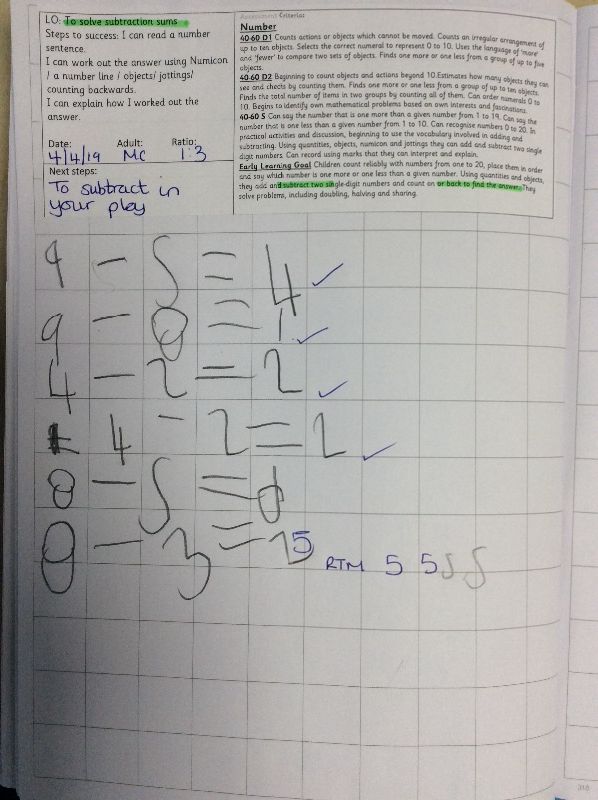 Assessment Criteria:
LO: To solve subtraction sums
Steps to success: I can read a number
sentence.
I can work out the answer using Numicon
/ a number line / objects/ jottings/
counting backwards.
I can explain how I worked out the
answer.
Date: Adult: Ratio:
4/4/19 MC 1:3
Next steps:
To subtract in
your play
Number
40-60 D1 Counts actions or objects which cannot be moved. Counts an irregular arrangement of
up to ten objects. Selects the correct numeral to represent 0 to 10. Uses the language of 'more'
and 'fewer' to compare two sets of objects. Finds one more or one less from a group of up to five
objects.
40-60 D2 Beginning to count objects and actions beyond 10. Estimates how many objects they can
see and checks by counting them. Finds one more or one less from a group of up to ten objects.
Finds the total number of items in two groups by counting all of them. Can order numerals 0 to
10. Begins to identify own mathematical problems based on own interests and fascinations.
40-60 S Can say the number that is one more than a given number from 1 to 19. Can say the
number that is one less than a given number from 1 to 10. Can recognise numbers 0 to 20. In
practical activities and discussion, beginning to use the vocabulary involved in adding and
subtracting. Using quantities, objects, numicon and jottings they can add and subtract two single
digit numbers. Can record using marks that they can interpret and explain.
Early Learning Goal Children count reliably with numbers from one to 20, place them in order
and say which number is one more or one less than a given number. Using quantities and objects,
they add and subtract two single-digit numbers and count on or back to find the answer. They
solve problems, including doubling, halving and sharing.
9 - 5 = 4
9 - 8 = 1
4 - 2 = 2
4 - 2 = 2
8 - 5 =
8 - 3 = 5
RTM 5 5 5 5